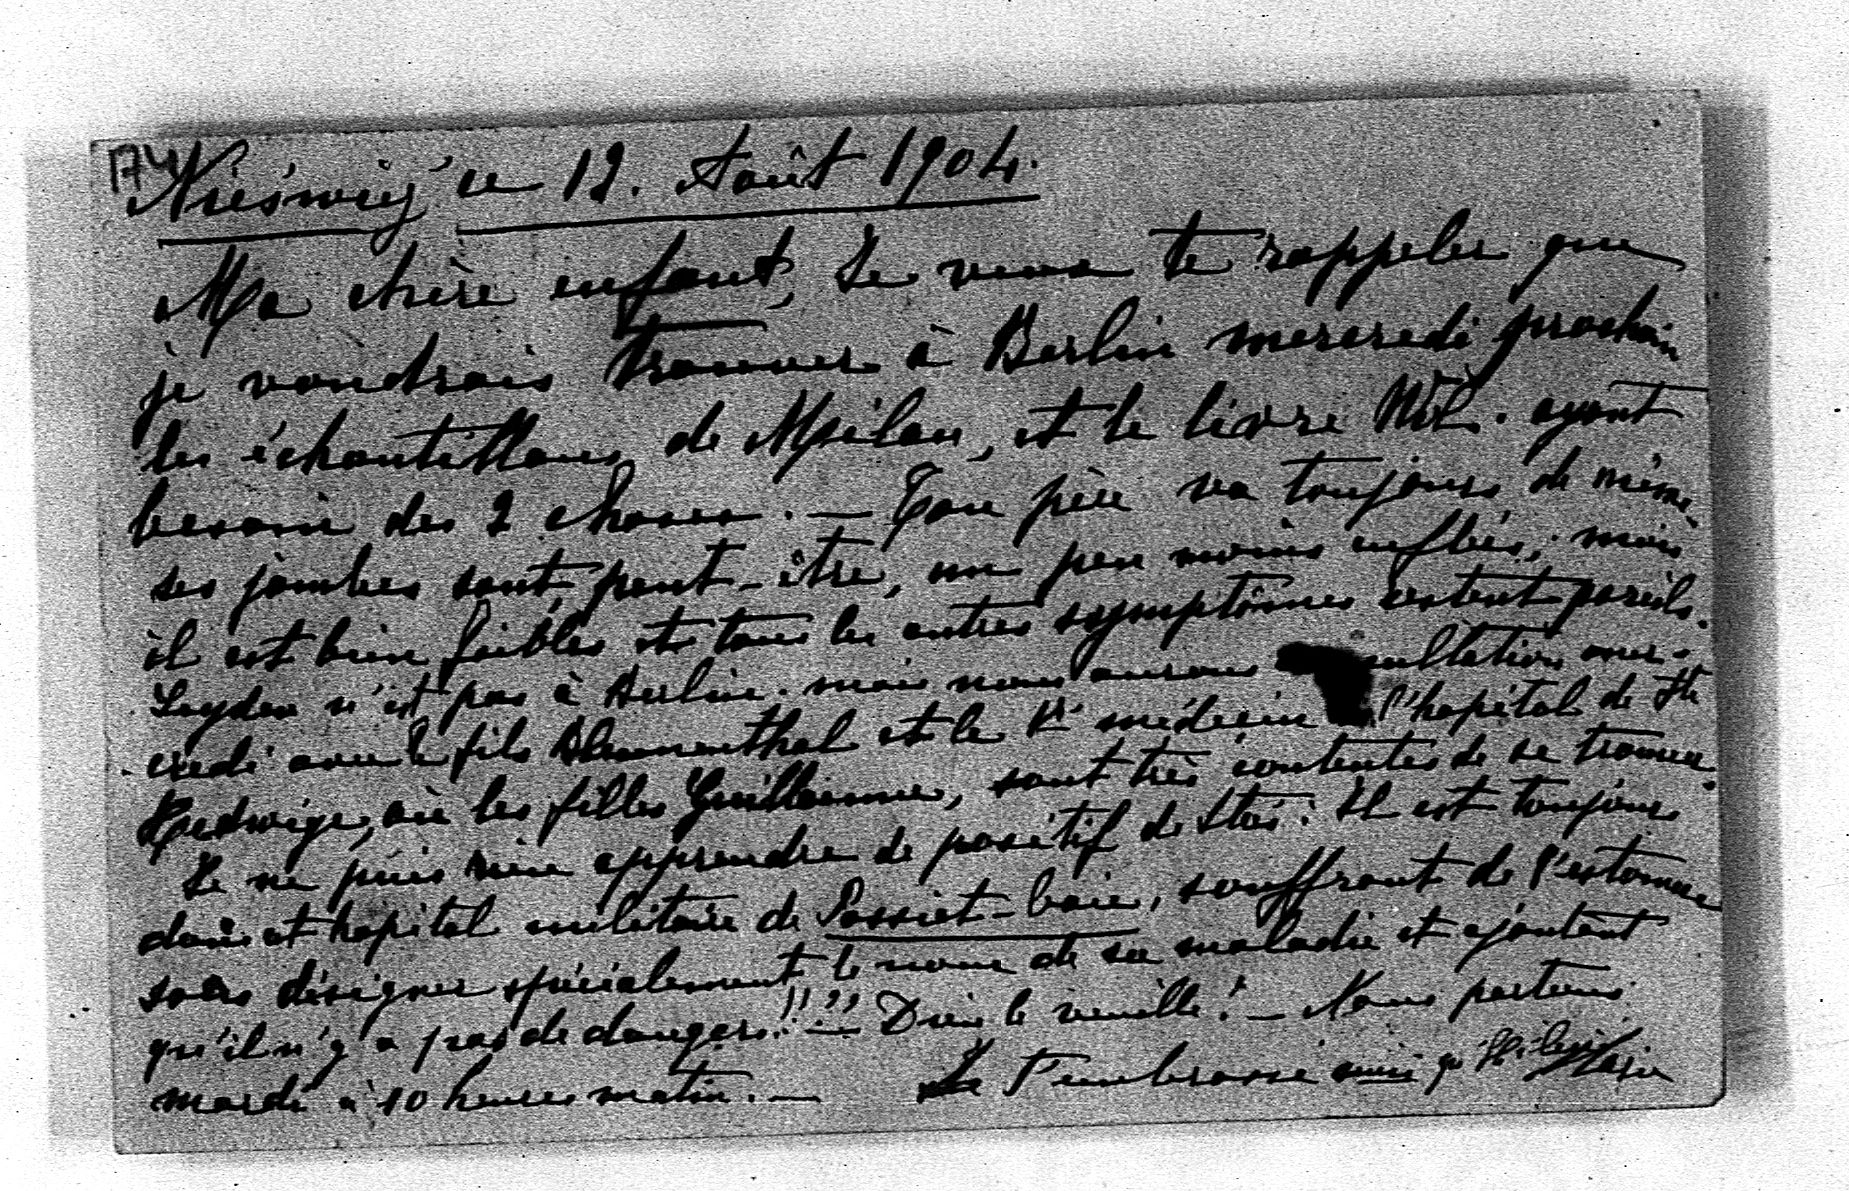 174
Nieśwież ce 12. Août 1904.
Ma chère enfant, Je veux te rappeler que
je voudrais trouver à Berlin mercredi prochain
les échantillons de Milan, et le livre ayant
besoin des 2 choses. — Ton père va toujours de même
ses jambes sont peut-être, un peu moins enflées, mais
il est bien faible et tous les autres symptômes restent pareils.
Leyden n'est pas à Berlin. mais nous aurons sultation mer-
credi avec le fils Blumenthal et le 1r médecin l'hopital de Ste
Hedwige, où les filles Guillaume, sont très contentes de se trouver.
Je ne puis rien apprendre de positif de Stas: Il est toujours
dans cet hôpital militaire de Possiet-baie, souffrant de l'estomac
sans désigner spécialement le nom de sa maladie et ajoutant
qu'il n'y a pas de danger!!"— Dieu le veuille! — Nous partons
mardi à 10 heures matin. — Je t'embrasse ainsi qu'